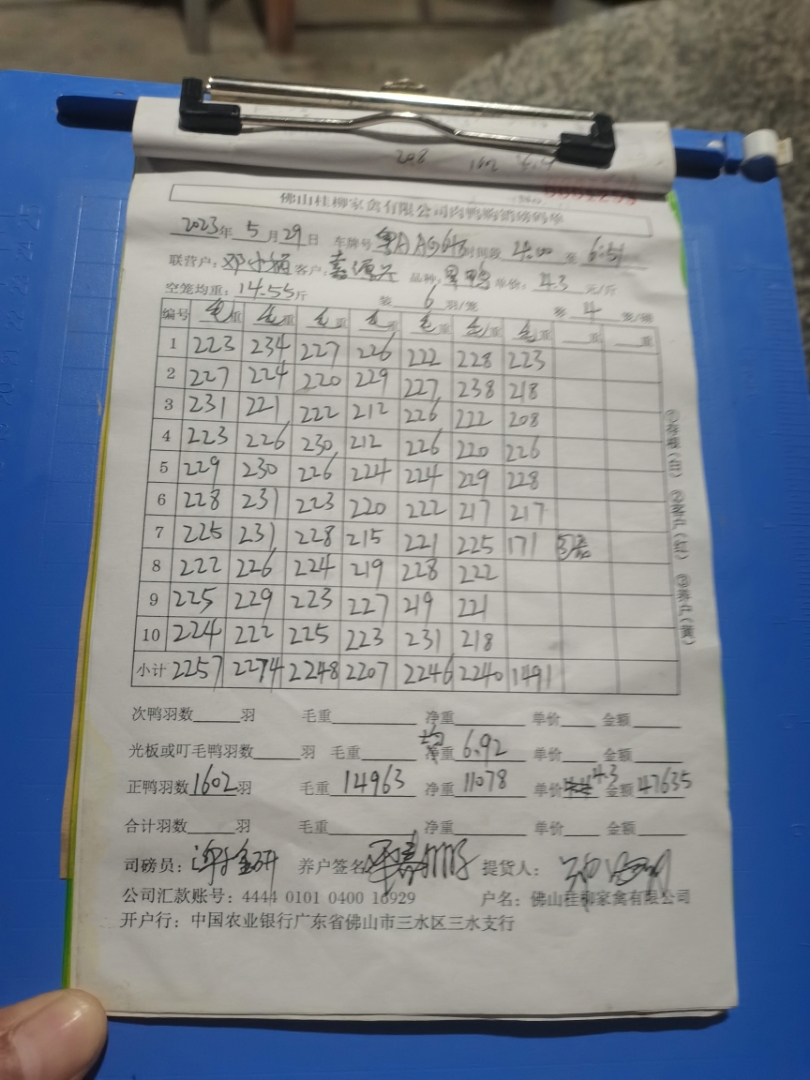 208 1602
佛山桂柳家禽有限公司肉鸭购销磅码单
2023年 5月29日 车牌号 粤A 时间段 4:00 至 6:51
联营户：邓 客户：嘉源兴 品种：黑鸭 单价：4.3 元/斤
空笼均重：14.55斤 装 6 羽/笼 4
编号 毛重 毛重 毛重 毛重 毛重 毛重 毛重 重 重
1 223 234 227 226 222 228 223
2 227 224 220 229 227 238 218
3 231 221 222 212 226 222 208
4 223 226 230 212 226 220 226
5 229 230 226 224 224 229 228
6 228 231 223 220 222 217 217
7 225 231 228 215 221 225 171
8 222 226 224 219 228 222
9 225 229 223 227 219 221
10 224 222 225 223 231 218
小计 2257 2274 2248 2207 2246 2240 1491
①存根(白) ②客户(红) ③养户(黄)
次鸭羽数 羽 毛重 净重 单价 金额
光板或叮毛鸭羽数 羽 毛重 均重 6.92 单价 金额
正鸭羽数 1602 羽 毛重 14963 净重 11078 单价 4.3 金额 47635
合计羽数 羽 毛重 净重 单价 金额
司磅员： 养户签名： 提货人：
公司汇款账号：4444 0101 0400 16929 户名：佛山桂柳家禽有限公司
开户行：中国农业银行广东省佛山市三水区三水支行